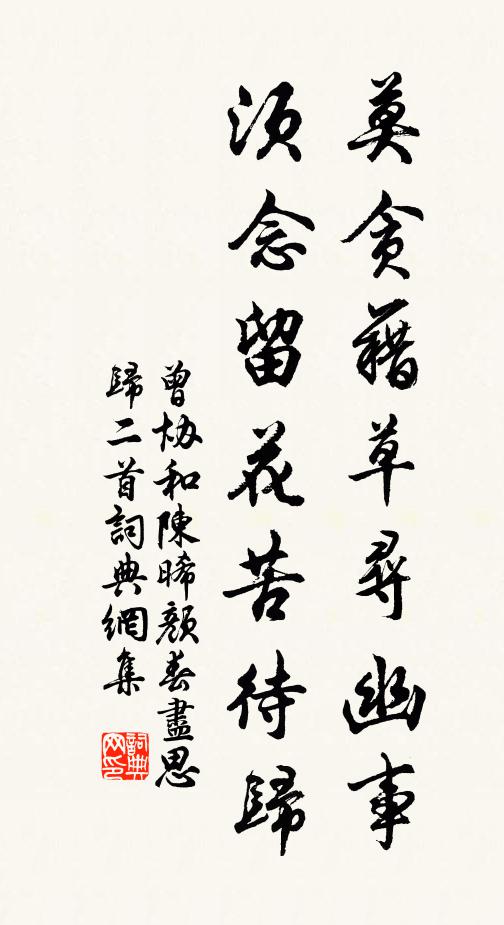 莫貪藉草尋幽事
須念留花苦待歸
曾协和陳晞顏春盡思
歸二首詞典網集
詞典网印